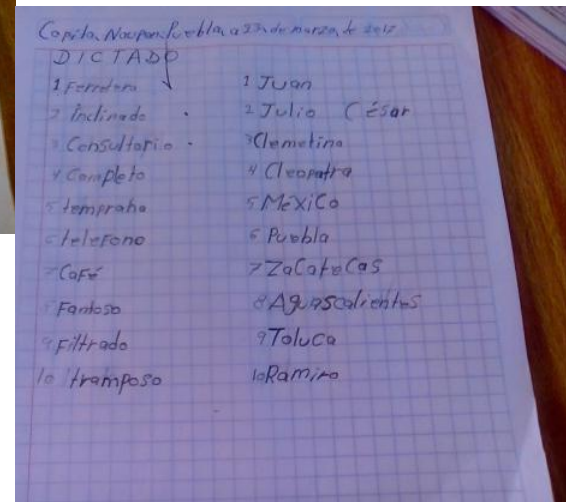 Copila, Naupan, Puebla, a 23 de marzo, de 2017
DICTADO
1 Ferretera
2 inclinado
3 Consultorio
4 Completo
5 temprano
6 telefono
7 Café
Famoso
9 Filtrado
10 tramposo
1 Juan
2 Julio César
3 Clemetina
4 Cleopatra
5 México
6 Puebla
7 ZaCateCas
8 Aguascalientes
9 Toluca
10 Ramiro